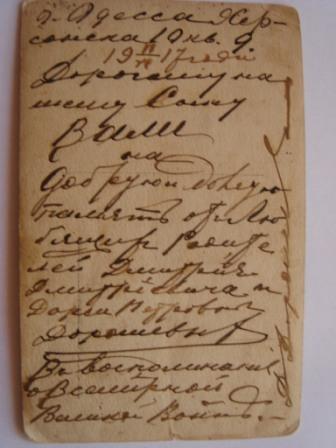 г. Одесса Хер-
сонска 10 кв. 9.
19 17 года
Дорогому на
шему Сыну
Вали
на
добрую долгую
память от Лю
бящих Родите
лей Дмитрия
Дмитриевича и
Дарии Петровны
Дорошевы
Въ воспоминание
о Всемирной
Великой Войнѣ.—